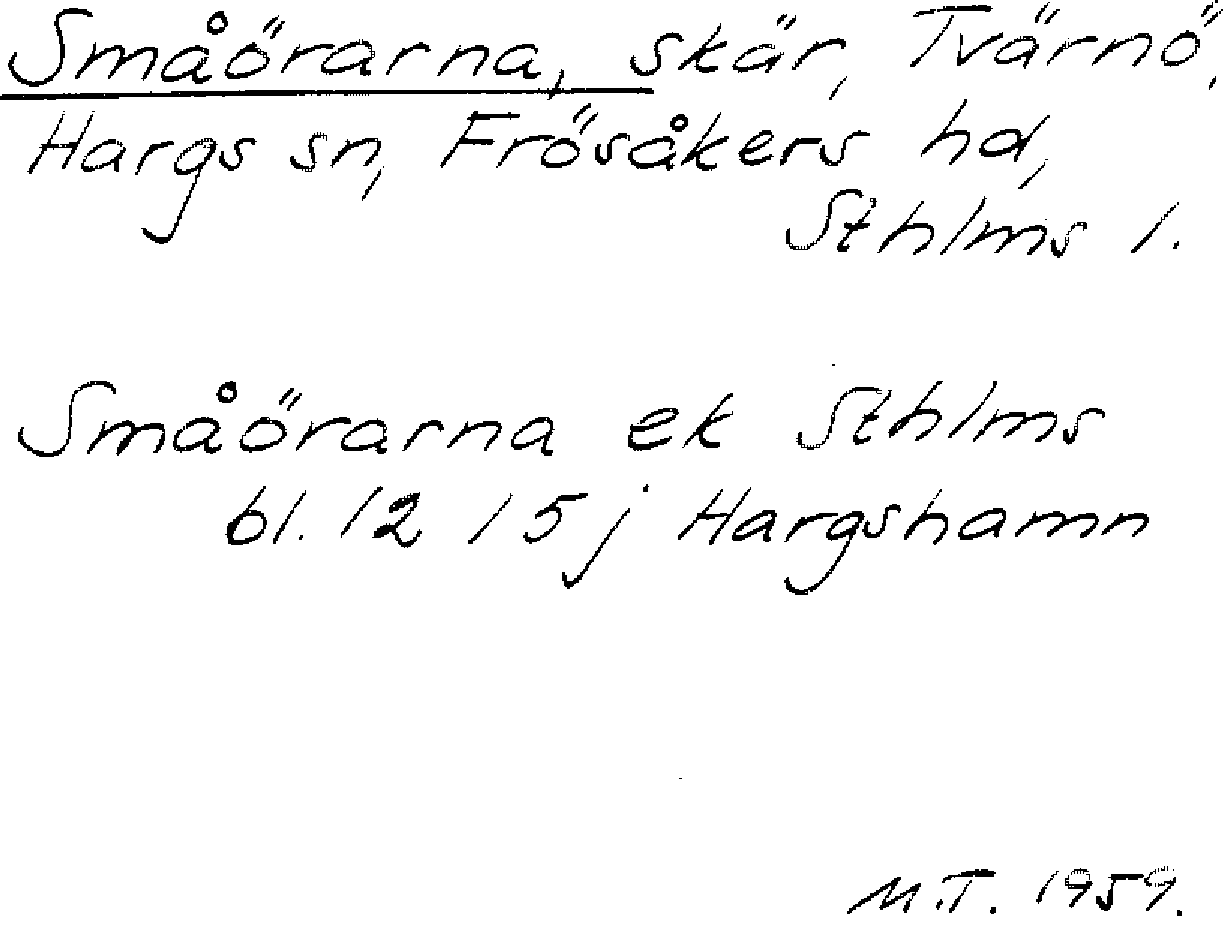 Småörarna, skär, Tvärnö,
Hargs sn, Frösåkers hd,
Sthlms l.
Småörarna ek Sthlms
bl. 12 15 j Hargshamn
M.T. 1959.